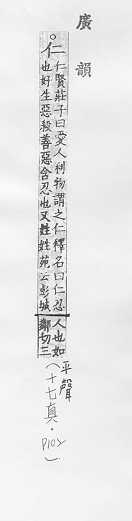 廣韻
仁 仁賢莊子曰愛人利物謂之仁釋名曰仁忍
也好生惡殺善惡含忍也又姓姓苑云彭城
人也如
鄰切三
平聲
(十七真·P102)